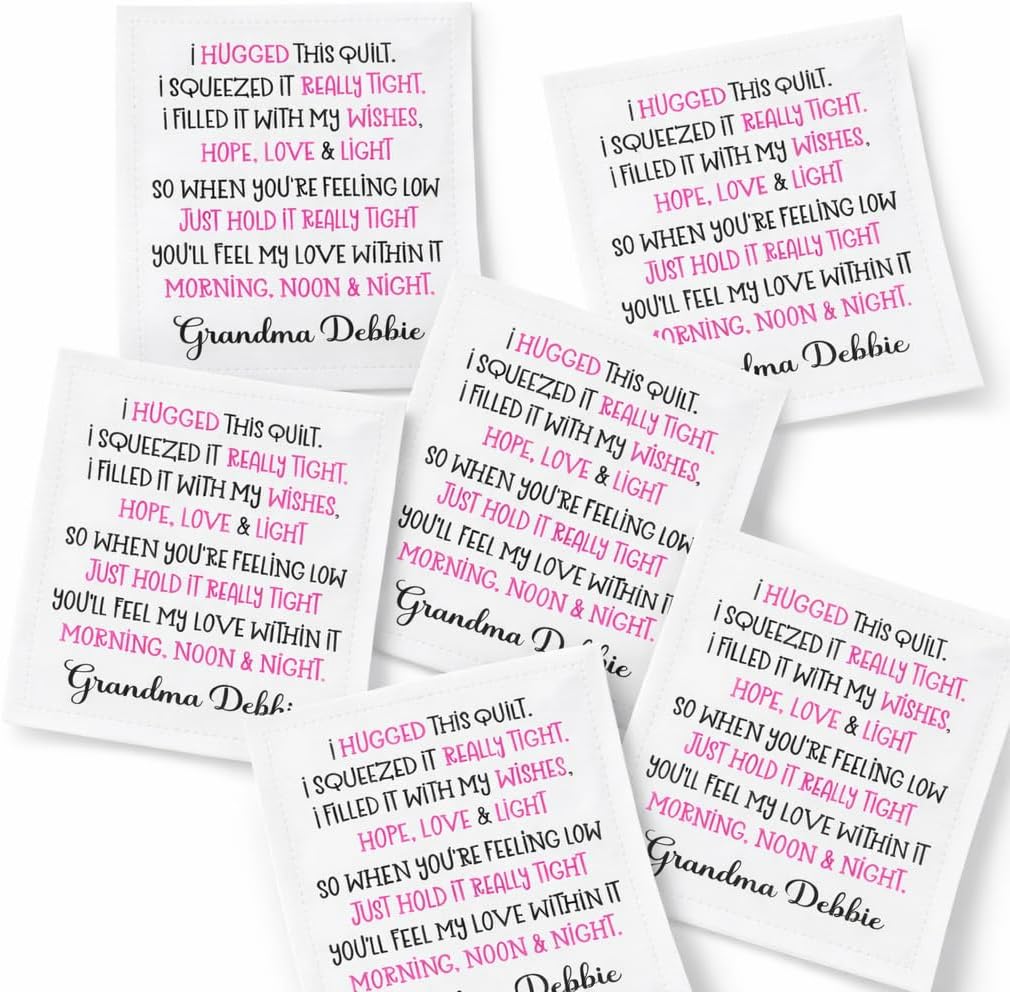 i HUGGED THiS QUiLT.
i SQUEEZED iT REALLY TiGHT.
i FiLLED iT WiTH MY WiSHES,
HOPE, LOVE & LiGHT
SO WHEN YOU'RE FEELiNG LOW
JUST HOLD iT REALLY TiGHT
YOU'LL FEEL MY LOVE WiTHiN iT
MORNiNG, NOON & NiGHT.
Grandma Debbie
i HUGGED THiS QUiLT.
i SQUEEZED iT REALLY TiGHT.
i FiLLED iT WiTH MY WiSHES,
HOPE, LOVE & LiGHT
SO WHEN YOU'RE FEELiNG LOW
JUST HOLD iT REALLY TiGHT
YOU'LL FEEL MY LOVE WiTHiN iT
MORNiNG, NOON & NiGHT.
Debbie
i HUGGED THiS QUiLT.
i SQUEEZED iT REALLY TiGHT.
i FiLLED iT WiTH MY WiSHES,
HOPE, LOVE & LiGHT
SO WHEN YOU'RE FEELiNG LOW
JUST HOLD iT REALLY TiGHT
YOU'LL FEEL MY LOVE WiTHiN iT
MORNiNG, NOON & NiGHT.
Grandma
i HUGGED THiS QUiLT.
i SQUEEZED iT REALLY TiGHT.
i FiLLED iT WiTH MY WiSHES,
HOPE, LOVE & LiGHT
SO WHEN YOU'RE FEELiNG LOW
JUST HOLD iT REALLY TiGHT
YOU'LL FEEL MY LOVE WiTHiN iT
MORNiNG, NOON & NiGHT.
Grandma
i HUGGED THiS QUiLT.
i SQUEEZED iT REALLY TiGHT.
i FiLLED iT WiTH MY WiSHES,
HOPE, LOVE & LiGHT
SO WHEN YOU'RE FEELiNG LOW
JUST HOLD iT REALLY TiGHT
YOU'LL FEEL MY LOVE WiTHiN iT
MORNiNG, NOON & NiGHT.
Grandma Debbie
i HUGGED THiS QUiLT.
i SQUEEZED iT REALLY TiGHT.
i FiLLED iT WiTH MY WiSHES,
HOPE, LOVE & LiGHT
SO WHEN YOU'RE FEELiNG LOW
JUST HOLD iT REALLY TiGHT
YOU'LL FEEL MY LOVE WiTHiN iT
MORNiNG, NOON & NiGHT.
Debbie